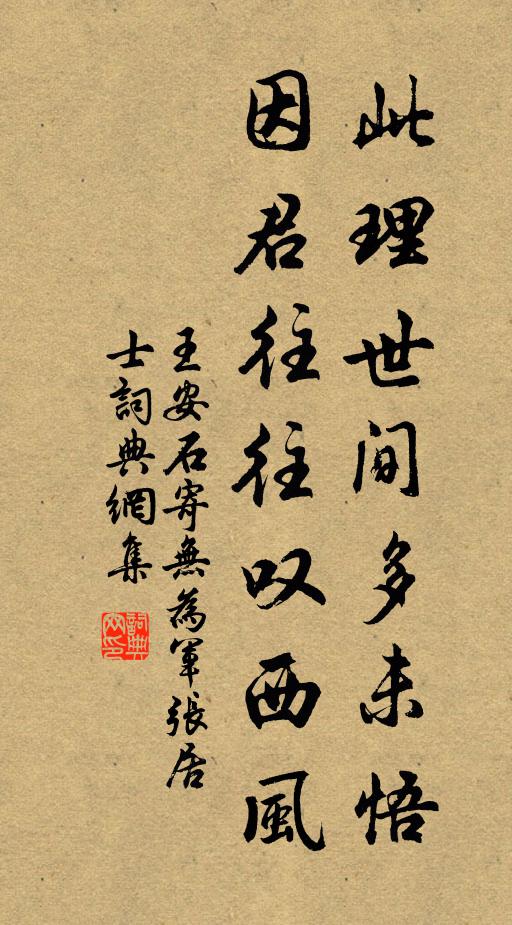 此理世间多未悟
因君往往叹西風
王安石寄無為軍張居
士詞典網集
詞典網印